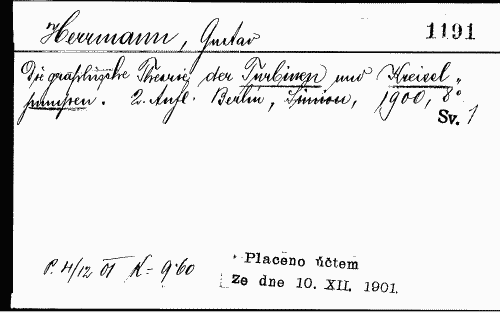 Herrmann, Gustav 1191
Die graphische Theorie der Turbinen und Kreisel„
pumpen. 2. Aufl. Berlin, Simion, 1900, 8°
Sv. 1
P. 4/12 01 K= 9·60
Placeno účtem
ze dne 10. XII. 1901.